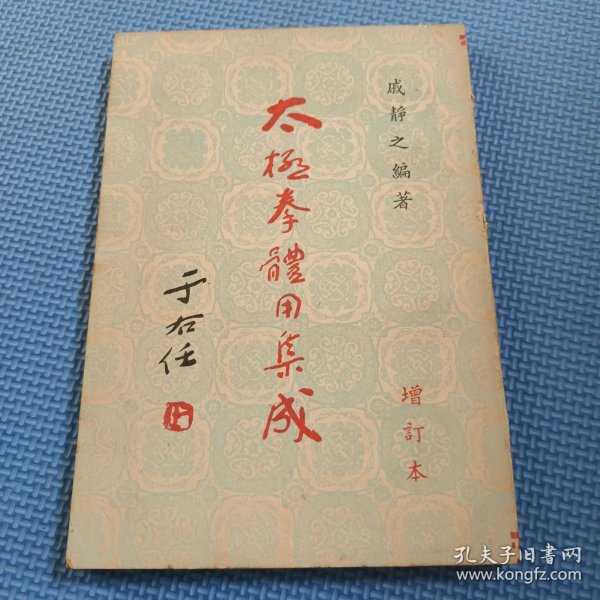 戚靜之編著
太極拳體用集成
于右任
增訂本
孔夫子旧书网
www.kongfz.com